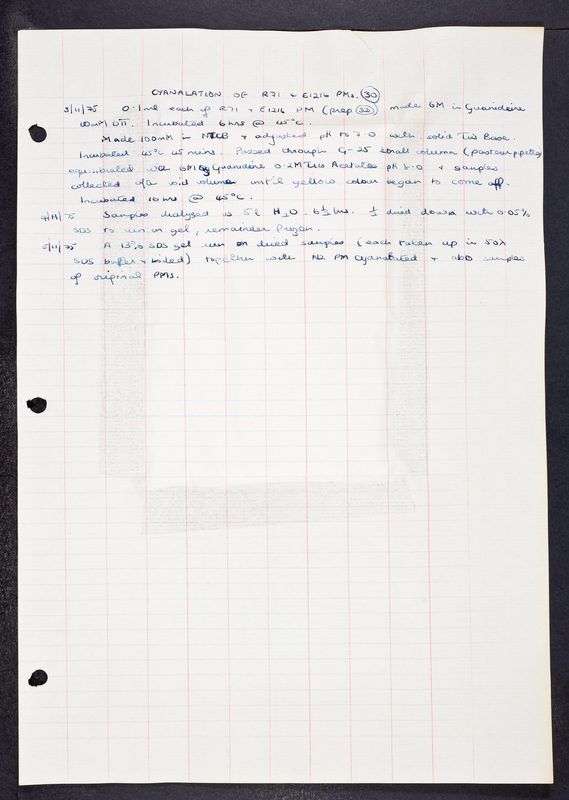 CYANALATION OF R71 + E1216 PMs. 30
3/11/75 0.1ml each of R71 + E1216 PM (prep 32) made 6M in Guanidine
10mM DTT. Incubated 6hrs @ 45°C.
Made 100mM in NTCB + adjusted pH to 7.0 with solid Tris Base.
Incubated 45°C 45 mins. Passed through G-25 small column (pasteur pipette)
equilibrated with 6M Guanidine 0.2M Tris Acetate pH 8.0 + samples
collected after void volume until yellow colour began to come off.
Incubated 16 hrs @ 45°C.
4/11/75 Samples dialyzed vs 5l H2O. 6½ hrs. ½ dried down with 0.05%
SDS to run on gel, remainder frozen.
5/11/75 A 13% SDS gel run on dried samples (each taken up in 50λ
SDS buffer + boiled) together with N2 PM cyanalated + also samples
of original PMs.